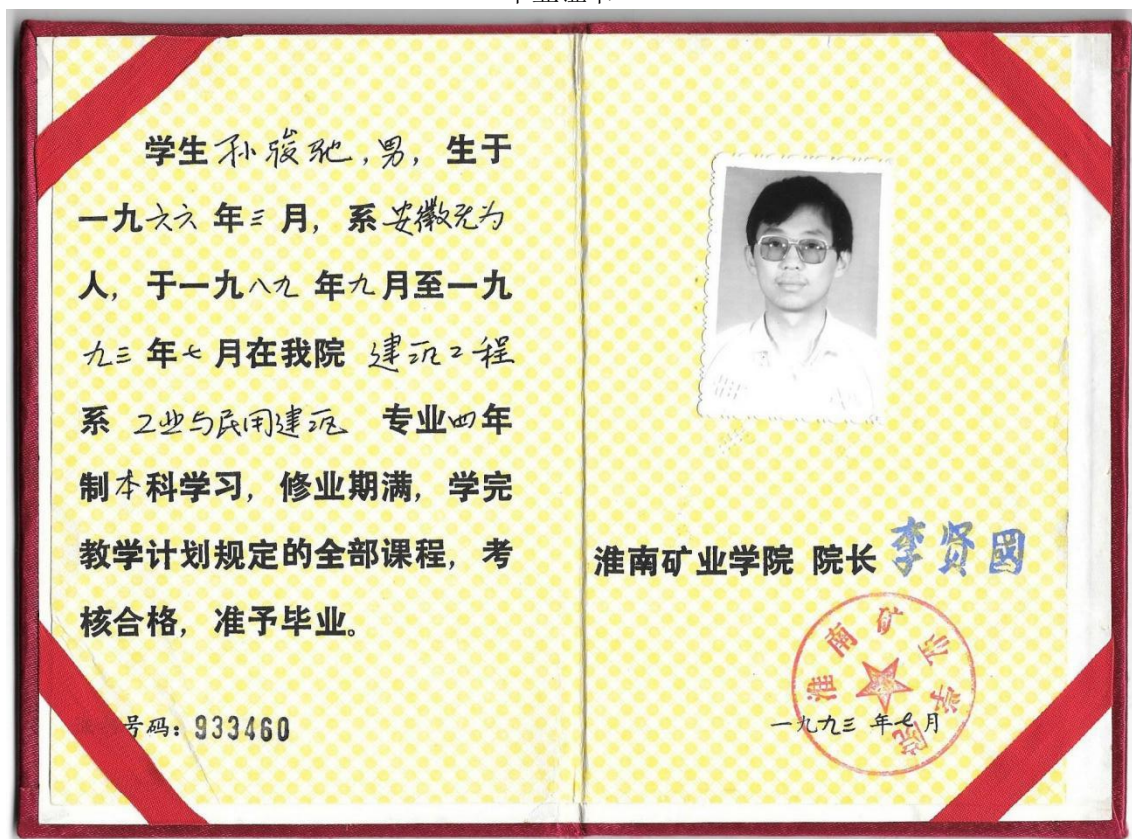 学生孙骏驰,男,生于
一九六六年三月,系安徽无为
人,于一九八九年九月至一九
九三年七月在我院 建筑工程
系 工业与民用建筑 专业四年
制本科学习,修业期满,学完
教学计划规定的全部课程,考
核合格,准予毕业。
号码:933460
淮南矿业学院 院长 李贤国
淮南矿业学院
一九九三年七月